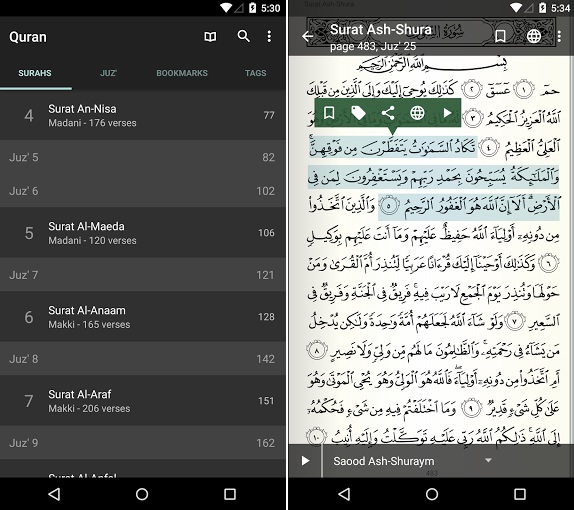 5:30
Quran
SURAHS JUZ' BOOKMARKS TAGS
4 Surat An-Nisa 77
Madani - 176 verses
Juz' 5 82
Juz' 6 102
5 Surat Al-Maeda 106
Madani - 120 verses
Juz' 7 121
6 Surat Al-Anaam 128
Makki - 165 verses
Juz' 8 142
7 Surat Al-Araf 151
Makki - 206 verses
Juz' 9 162
Surat Al-Anfal
5:34
Surat Ash-Shura
Surat Ash-Shura
page 483, Juz' 25
بِسْمِ ٱللَّهِ ٱلرَّحْمَـٰنِ ٱلرَّحِيمِ
حمٓ ١ عٓسٓقٓ ٢ كَذَٰلِكَ يُوحِىٓ إِلَيْكَ وَإِلَى ٱلَّذِينَ مِن قَبْلِكَ
ٱللَّهُ ٱلْعَزِيزُ ٱلْحَكِيمُ ٣
ٱلْعَلِىُّ ٱلْعَظِيمُ ٤ تَكَادُ ٱلسَّمَـٰوَٰتُ يَتَفَطَّرْنَ مِن فَوْقِهِنَّ
وَٱلْمَلَـٰٓئِكَةُ يُسَبِّحُونَ بِحَمْدِ رَبِّهِمْ وَيَسْتَغْفِرُونَ لِمَن فِى
ٱلْأَرْضِ أَلَآ إِنَّ ٱللَّهَ هُوَ ٱلْغَفُورُ ٱلرَّحِيمُ ٥ وَٱلَّذِينَ ٱتَّخَذُوا۟
مِن دُونِهِۦٓ أَوْلِيَآءَ ٱللَّهُ حَفِيظٌ عَلَيْهِمْ وَمَآ أَنتَ عَلَيْهِم بِوَكِيلٍ
٦ وَكَذَٰلِكَ أَوْحَيْنَآ إِلَيْكَ قُرْءَانًا عَرَبِيًّا لِّتُنذِرَ أُمَّ ٱلْقُرَىٰ وَمَنْ
حَوْلَهَا وَتُنذِرَ يَوْمَ ٱلْجَمْعِ لَا رَيْبَ فِيهِ فَرِيقٌ فِى ٱلْجَنَّةِ وَفَرِيقٌ فِى
ٱلسَّعِيرِ ٧ وَلَوْ شَآءَ ٱللَّهُ لَجَعَلَهُمْ أُمَّةً وَٰحِدَةً وَلَـٰكِن يُدْخِلُ
مَن يَشَآءُ فِى رَحْمَتِهِۦ وَٱلظَّـٰلِمُونَ مَا لَهُم مِّن وَلِىٍّ وَلَا نَصِيرٍ ٨
أَمِ ٱتَّخَذُوا۟ مِن دُونِهِۦٓ أَوْلِيَآءَ فَٱللَّهُ هُوَ ٱلْوَلِىُّ وَهُوَ يُحْىِ ٱلْمَوْتَىٰ وَهُوَ
عَلَىٰ كُلِّ شَىْءٍ قَدِيرٌ ٩ وَمَا ٱخْتَلَفْتُمْ فِيهِ مِن شَىْءٍ فَحُكْمُهُۥٓ
إِلَى ٱللَّهِ ذَٰلِكُمُ ٱللَّهُ رَبِّى عَلَيْهِ تَوَكَّلْتُ وَإِلَيْهِ أُنِيبُ ١٠
Saood Ash-Shuraym
483